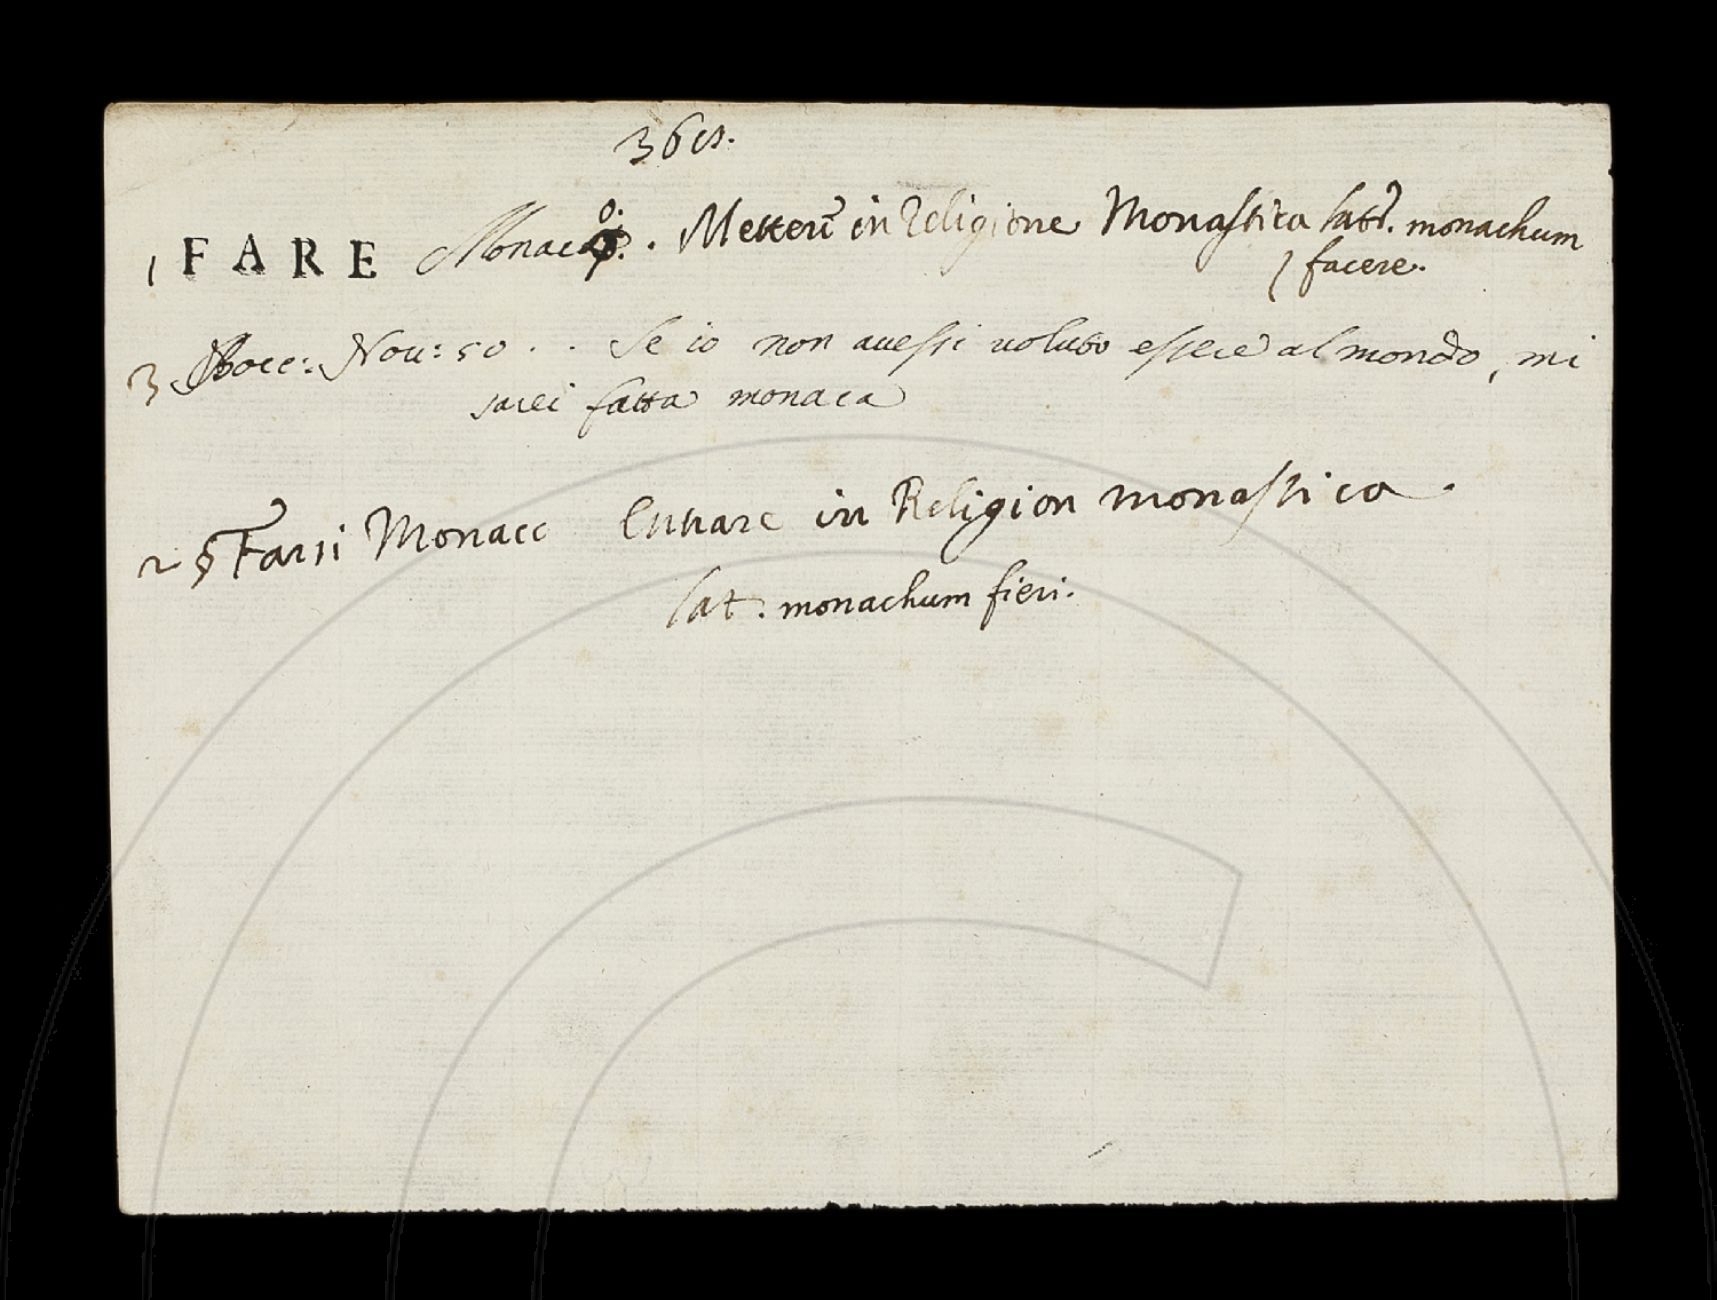 1 FARE Monaco. Metteri in Religione Monastica lat. monachum
facere.
3 Bocc: Nov: 50 . . Se io non avessi voluto essere al mondo, mi
sarei fatta monaca
2 § Farsi Monaco Entrare in Religion monastica.
lat. monachum fieri.